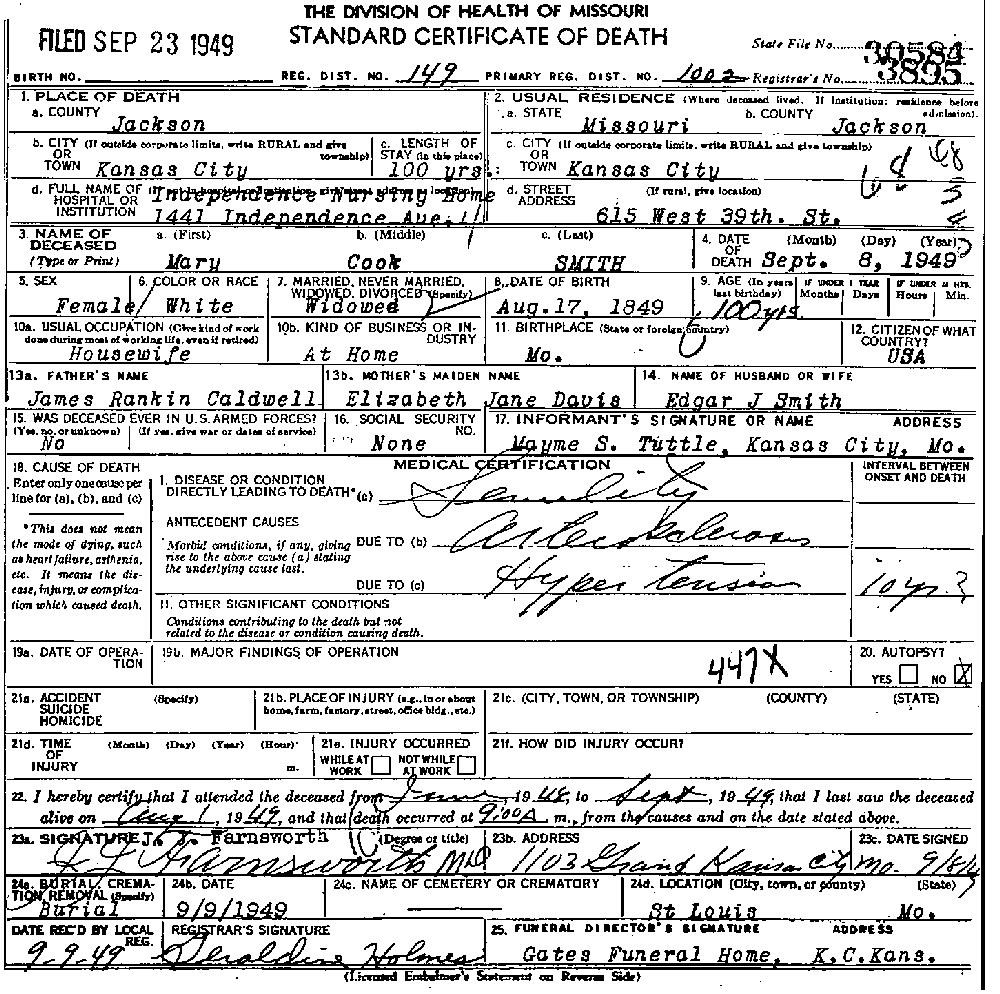 THE DIVISION OF HEALTH OF MISSOURI
FILED SEP 23 1949 STANDARD CERTIFICATE OF DEATH State File No. 30584
BIRTH NO. REG. DIST. NO. 149 PRIMARY REG. DIST. NO. 1002 Registrar's No. 3895
1. PLACE OF DEATH
a. COUNTY Jackson
2. USUAL RESIDENCE (Where deceased lived. If institution: residence before admission).
a. STATE Missouri b. COUNTY Jackson
b. CITY (If outside corporate limits, write RURAL and give township) OR TOWN Kansas City
c. LENGTH OF STAY (in this place) 100 yrs.
c. CITY (If outside corporate limits, write RURAL and give township) OR TOWN Kansas City
d. FULL NAME OF HOSPITAL OR INSTITUTION Independence Nursing Home
1441 Independence Ave.
d. STREET ADDRESS (If rural, give location) 615 West 39th. St.
3. NAME OF DECEASED (Type or Print) a. (First) Mary b. (Middle) Cook c. (Last) SMITH
4. DATE OF DEATH (Month) (Day) (Year) Sept. 8, 1949
5. SEX Female
6. COLOR OR RACE White
7. MARRIED, NEVER MARRIED, WIDOWED, DIVORCED (Specify) Widowed
8. DATE OF BIRTH Aug. 17, 1849
9. AGE (In years last birthday) 100 yrs. IF UNDER 1 YEAR Months Days IF UNDER 24 HRS. Hours Min.
10a. USUAL OCCUPATION (Give kind of work done during most of working life, even if retired) Housewife
10b. KIND OF BUSINESS OR INDUSTRY At Home
11. BIRTHPLACE (State or foreign country) Mo.
12. CITIZEN OF WHAT COUNTRY? USA
13a. FATHER'S NAME James Rankin Caldwell
13b. MOTHER'S MAIDEN NAME Elizabeth Jane Davis
14. NAME OF HUSBAND OR WIFE Edgar J Smith
15. WAS DECEASED EVER IN U.S. ARMED FORCES? (Yes, no, or unknown) (If yes, give war or dates of service) No
16. SOCIAL SECURITY NO. None
17. INFORMANT'S SIGNATURE OR NAME ADDRESS
Mayme S. Tuttle, Kansas City, Mo.
18. CAUSE OF DEATH
Enter only one cause per line for (a), (b), and (c)
*This does not mean the mode of dying, such as heart failure, asthenia, etc. It means the disease, injury, or complication which caused death.
MEDICAL CERTIFICATION
INTERVAL BETWEEN ONSET AND DEATH
I. DISEASE OR CONDITION DIRECTLY LEADING TO DEATH* (a) Senility
ANTECEDENT CAUSES
Morbid conditions, if any, giving rise to the above cause (a) stating the underlying cause last.
DUE TO (b) Arteriosclerosis
DUE TO (c) Hyper tension 10 yr ?
II. OTHER SIGNIFICANT CONDITIONS
Conditions contributing to the death but not related to the disease or condition causing death.
19a. DATE OF OPERATION
19b. MAJOR FINDINGS OF OPERATION
447X
20. AUTOPSY? YES NO X
21a. ACCIDENT SUICIDE HOMICIDE (Specify)
21b. PLACE OF INJURY (e.g., in or about home, farm, factory, street, office bldg., etc.)
21c. (CITY, TOWN, OR TOWNSHIP) (COUNTY) (STATE)
21d. TIME OF INJURY (Month) (Day) (Year) (Hour) m.
21e. INJURY OCCURRED WHILE AT WORK NOT WHILE AT WORK
21f. HOW DID INJURY OCCUR?
22. I hereby certify that I attended the deceased from June, 1948, to Sept, 1949, that I last saw the deceased
alive on Aug 1, 1949, and that death occurred at 9:00A m., from the causes and on the date stated above.
23a. SIGNATURE J. F. Farnsworth (Degree or title)
Farnsworth MD
23b. ADDRESS 1103 Grand Kansas City Mo.
23c. DATE SIGNED 9/8/49
24a. BURIAL, CREMATION, REMOVAL (Specify) Burial
24b. DATE 9/9/1949
24c. NAME OF CEMETERY OR CREMATORY
24d. LOCATION (City, town, or county) (State) St Louis Mo.
DATE REC'D BY LOCAL REG. 9-9-49
REGISTRAR'S SIGNATURE Geraldine Holmes
25. FUNERAL DIRECTOR'S SIGNATURE ADDRESS
Gates Funeral Home, K.C.Kans.
(Licensed Embalmer's Statement on Reverse Side)